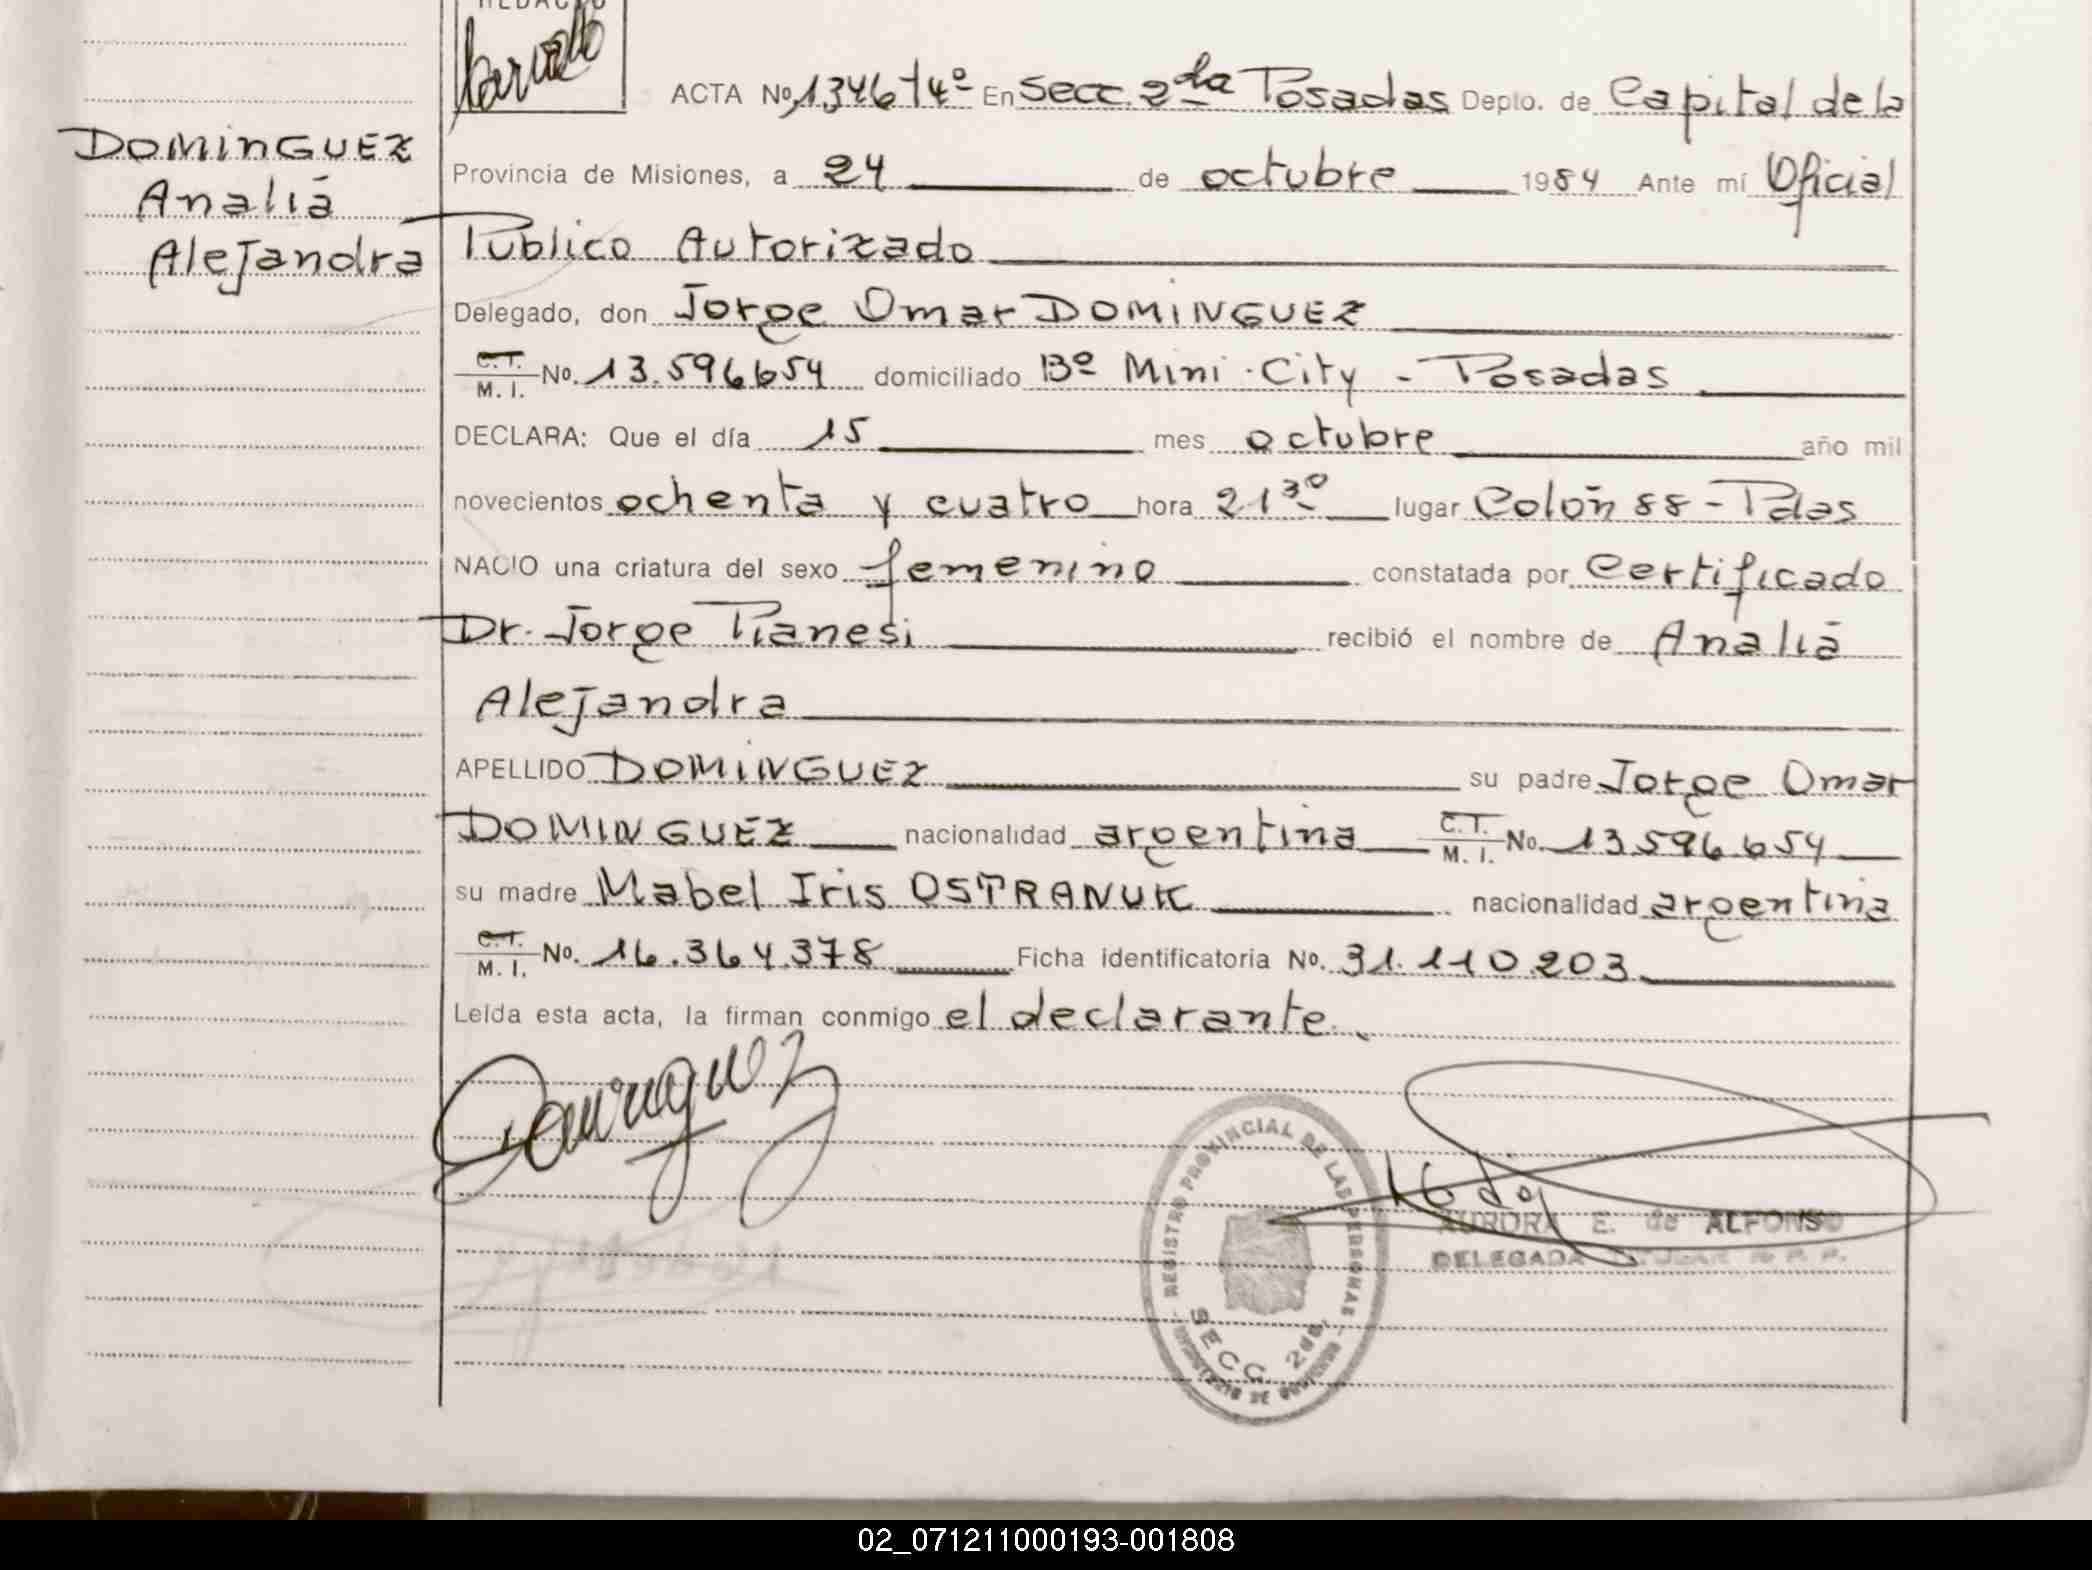 REDACTO
ACTA No. 1346 t4º En Secc. 2da Posadas Depto. de Capital de la
DOMINGUEZ
Analía
Alejandra
Provincia de Misiones, a 24 de octubre 1984 Ante mí Oficial
Público Autorizado
Delegado, don Jorge Omar DOMINGUEZ
C.T. M.I. No. 13.596.654 domiciliado Bº Mini-City - Posadas
DECLARA: Que el día 15 mes octubre año mil
novecientos ochenta y cuatro hora 21 30 lugar Colón 88 - Pdas
NACIO una criatura del sexo femenino constatada por Certificado
Dr. Jorge Pianesi recibió el nombre de Analía
Alejandra
APELLIDO DOMINGUEZ su padre Jorge Omar
DOMINGUEZ nacionalidad argentina C.T. M.I. No. 13.596.654
su madre Mabel Iris OSTRANUK nacionalidad argentina
C.T. M.I. No. 16.364.378 Ficha identificatoria No. 31.110.203
Leída esta acta, la firman conmigo el declarante.
REGISTRO PROVINCIAL DE LAS PERSONAS
SECC. 2da.
MINISTERIO DE GOBIERNO - MISIONES
AURORA E. de ALFONSO
DELEGADA
02_071211000193-001808